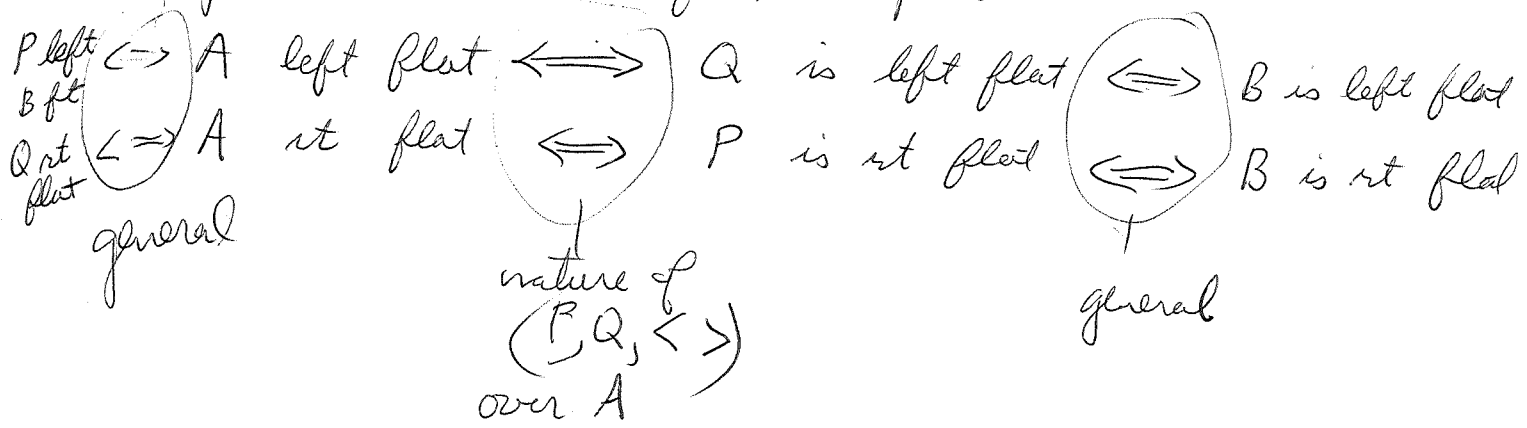 P left B flt <=> A left flat <=> Q is left flat <=> B is left flat
Q rt flat <=> A rt flat <=> P is rt flat <=> B is rt flat
general
nature of
(P, Q, < >)
over A
general